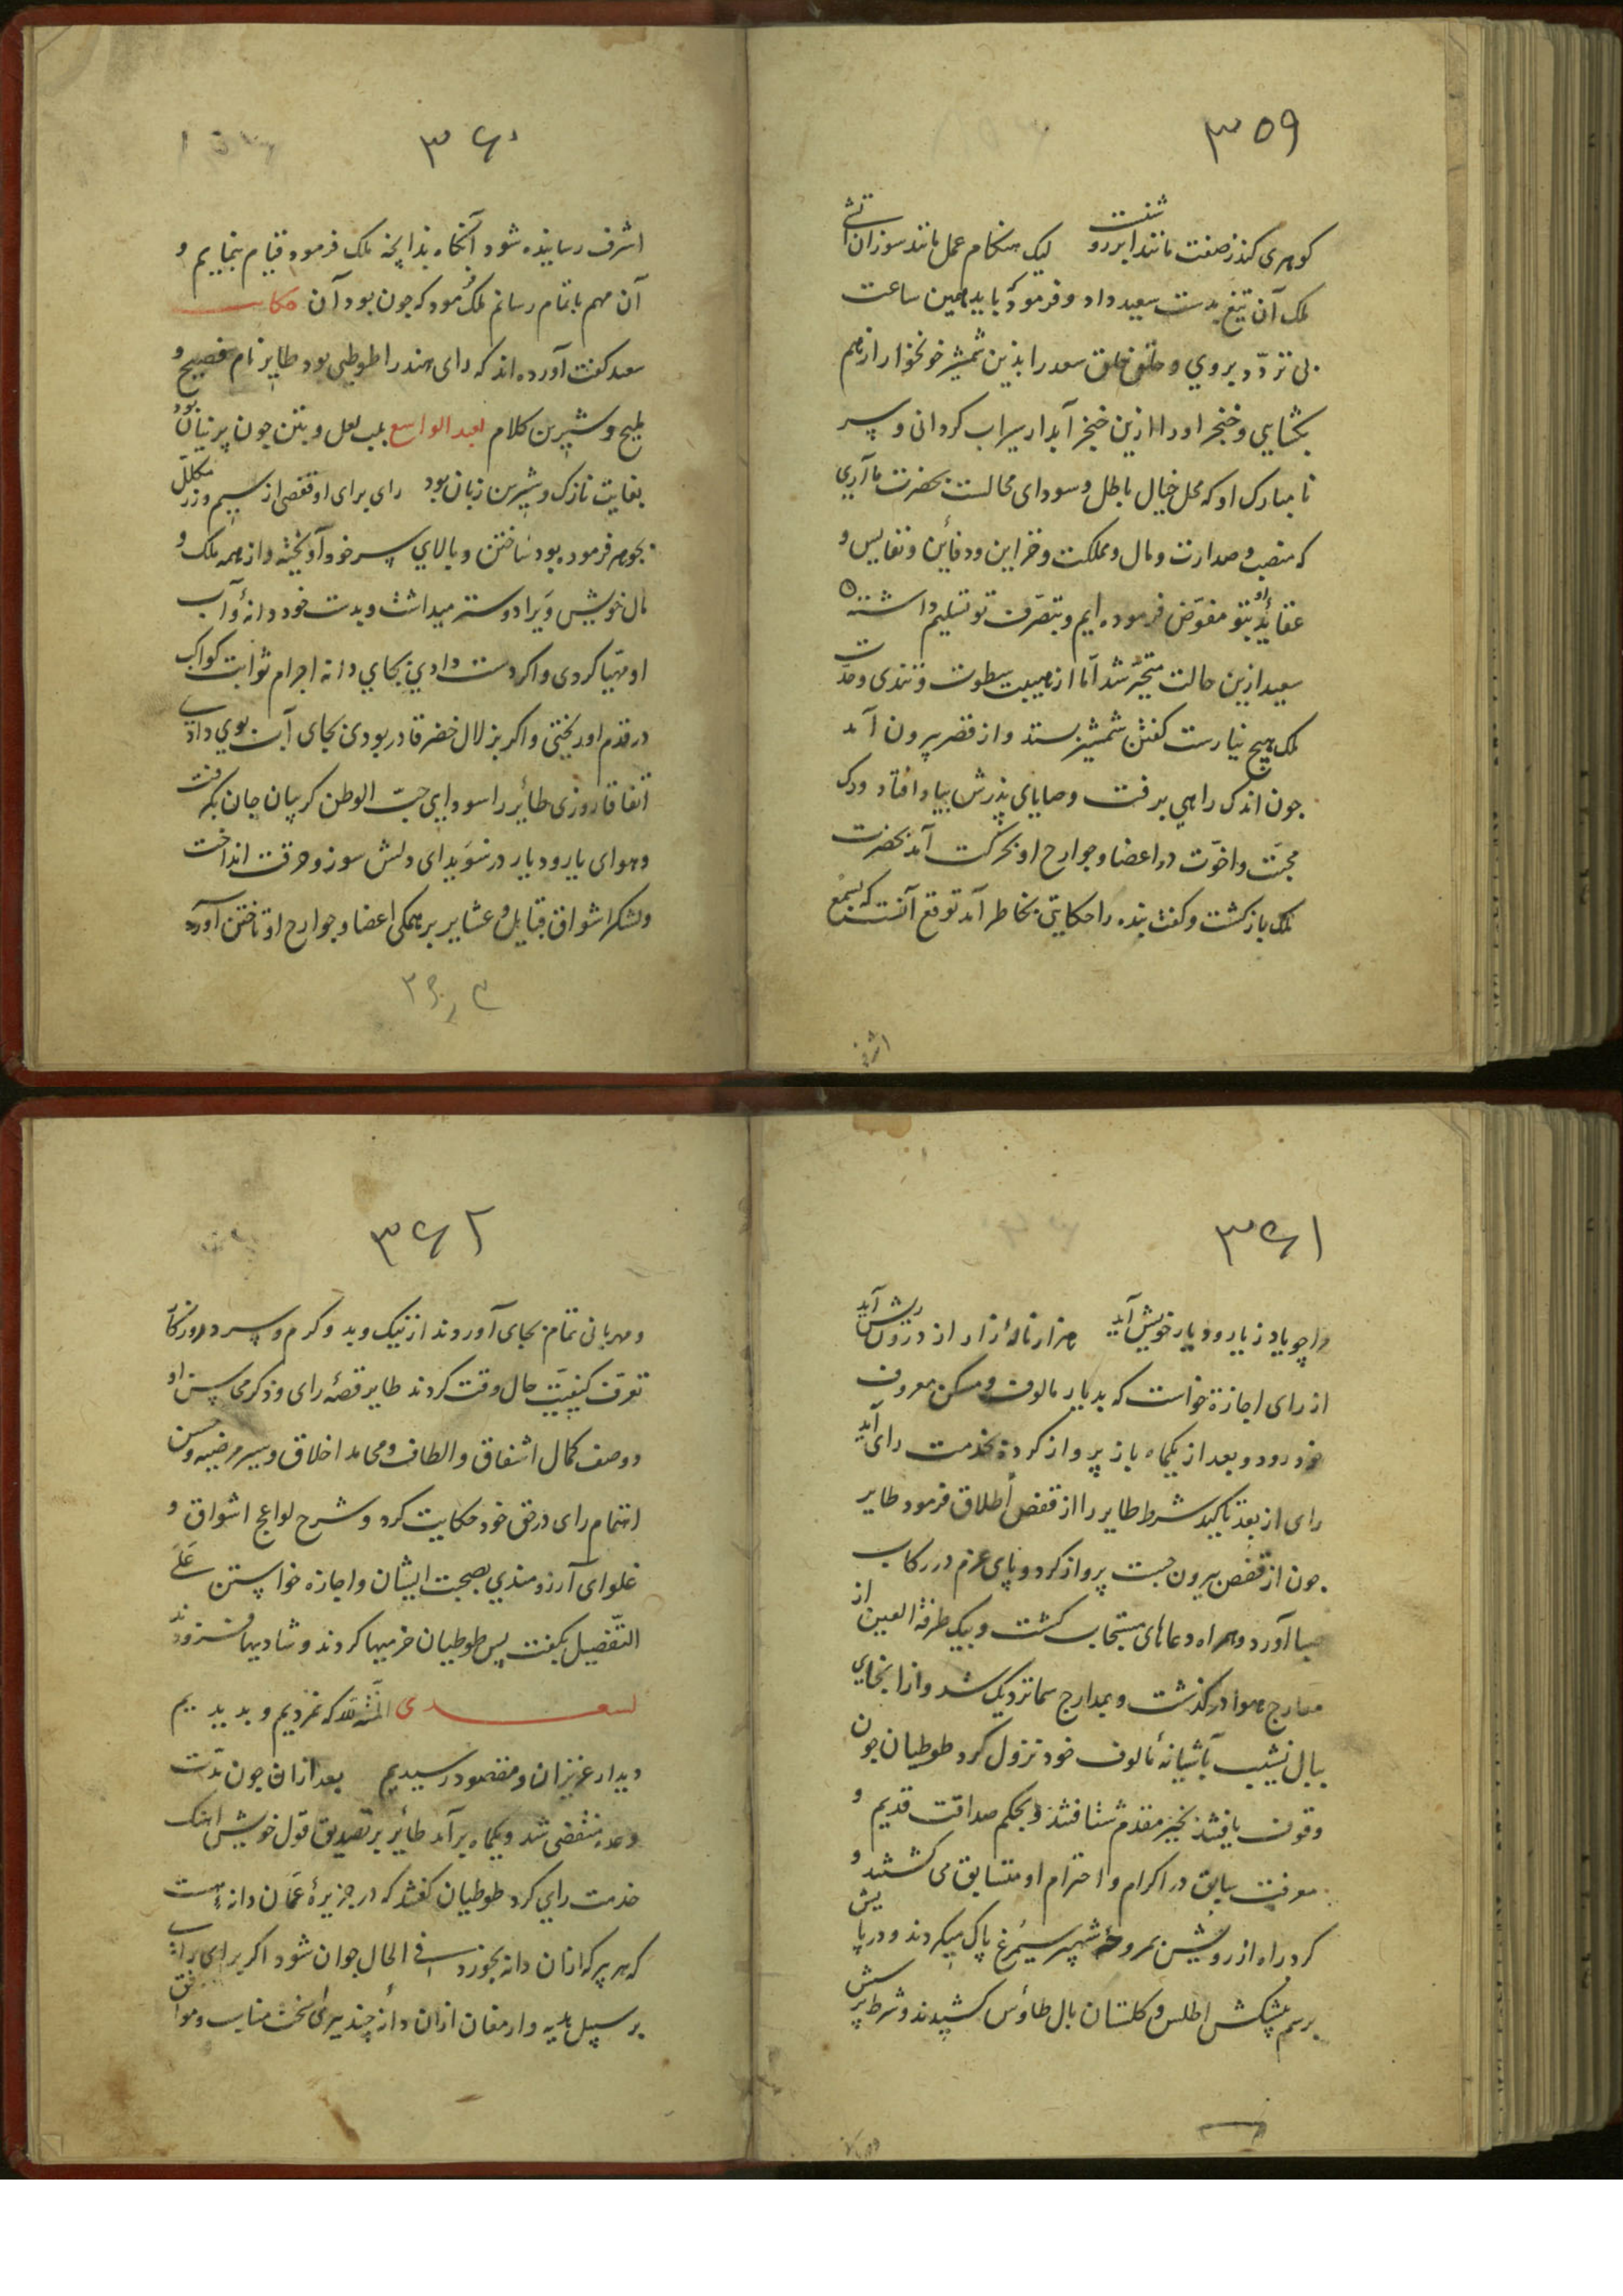 ۳۵۹
کوهری کند ز صفت مانند ابر رو شست لیک هنکام عمل مانند سوزان آتشی
ملک آن تیغ بدست سعید داد و فرمود که باید همین ساعت
بی تردّد بروی و حلق سعد را بذین شمشیر خونخوار از هم
بکشایی و خنجر او را ازین خنجر آبدار سیراب کردانی و سر
نامبارک او که محل خیال باطل و سودای محالست بحضرت ما آری
که منصب و صدارت و مال و مملکت و خزاین و دفاین و نفایس و
عقاید او بتو مفوّض فرموده ایم و بتصرّف تو تسلیم داشته
سعید ازین حالت متحیّر شد امّا از هیبت سطوت و تندی و حدّت
ملک هیچ نیارست کفتن شمشیر بستد و از قصر بیرون آمد
چون اندک راهی برفت وصایای پذرش بیاد افتاد و رک
محبّت و اخوّت در اعضا و جوارح او بحرکت آمد بحضرت
ملک باز کشت و کفت بنده را حکایتی بخاطر آمد توقع آنست که بسمع
اشرف
۳۶۰
اشرف رسانیده شود آنکاه بذانچه ملک فرمود قیام بنماییم و
آن مهم باتمام رسانم ملک فرمود که چون بود آن حکایت
سعید کفت آورده اند که رای هند را طوطی بود طایر نام فصیح و
ملیح و شیرین کلام لعبد الواسع بلب لعل و بتن چون پرنیان بود
بغایت نازک و شیرین زبان بود رای برای او قفصی از سیم و زر مکلّل
بجوهر فرموده بود ساختن و بالای سر خود آویخته و از همه ملک و
مال خویش ویرا دوستر میداشت و بدست خود دانه و آب
او مهیّا کردی و اکر دست دادی بجای دانه اجرام ثوابت کواکب
در قدم او ریختی و اکر بزلال خضر قادر بودی بجای آب بوی دادی
اتفاقا روزی طائر را سودای حبّ الوطن کریبان جان بکرفت
و هوای یار و دیار در سویدای دلش سوز و حرقت انداخت
و لشکر اشواق قبایل و عشایر بر همکی اعضا و جوارح او تاختن آورد
۳۶۱
مرا چو یاد ز یار و دیار خویش آید هزار ناله زار از درون ریش آید
از رای اجازة خواست که بدیار مالوف و مسکن معروف
خود رود و بعد از یکماه باز پرواز کرده بخدمت رای آید
رای از بعد تاکید شرط طایر را از قفص اطلاق فرمود طایر
چون از قفص بیرون جست پرواز کرد و پای عزم در رکاب
صبا آورد و همراه دعاهای مستجاب کشت و بیک طرفة العین از
معارج هوا درکذشت و بمدارج سما نزدیک شد و از انجای
ببال نشیب بآشیانه مالوف خود نزول کرد طوطیان چون
وقوف یافتند بخیر مقدم شتافتند و بحکم صداقت قدیم و
معرفت سابق در اکرام و احترام او متسابق می کشتند و
کرد راه از رویش بمروحه شهپر سیمرغ پاک میکردند و در پایش
برسم پیشکش اطلس و کلستان بال طاؤس کشیدند و شرط پرسش
۳۶۲
و مهربانی تمام بجای آوردند از نیک و بد و کرم و سرد روزکار
تعرّف کیفیّت حال وقت کردند طایر قصّه رای و ذکر محاسن او
و وصف کمال اشفاق و الطاف و محامد اخلاق و سیر مرضیه و حسن
اهتمام رای در حق خود حکایت کرد و شرح لواعج اشواق و
غلوای آرزومندی بصحبت ایشان و اجازه خواستن علی
التفصیل بکفت پس طوطیان خرمیها کردند و شادیها فزودند
لسعدی المنّة لله که نمردیم و بدیدیم
دیدار عزیزان و بمقصود رسیدیم بعد ازان چون مدّت
وعده منقضی شد و یکماه برآمد طائر بر تصدیق قول خویش آهنک
خدمت رای کرد طوطیان کفتند که در جزیره عمّان دانه است
که هر پیر که ازان دانه بخورد فی الحال جوان شود اکر برای رای
بر سبیل هدیه و ارمغان ازان دانه چند بری سخت مناسب و موافق